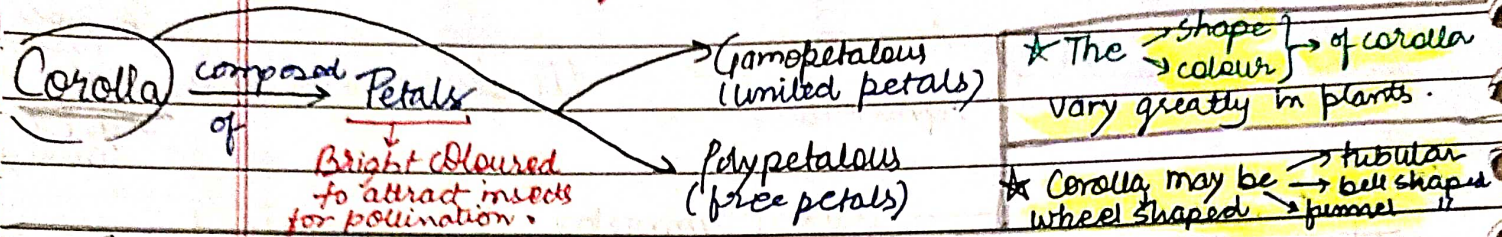 Corolla composed of → Petals
Bright coloured
to attract insects
for pollination.
Gamopetalous
(united petals)
Polypetalous
(free petals)
☆ The → shape → colour } → of corolla
vary greatly in plants.
☆ Corolla may be → tubular → bell shaped → funnel "
wheel shaped